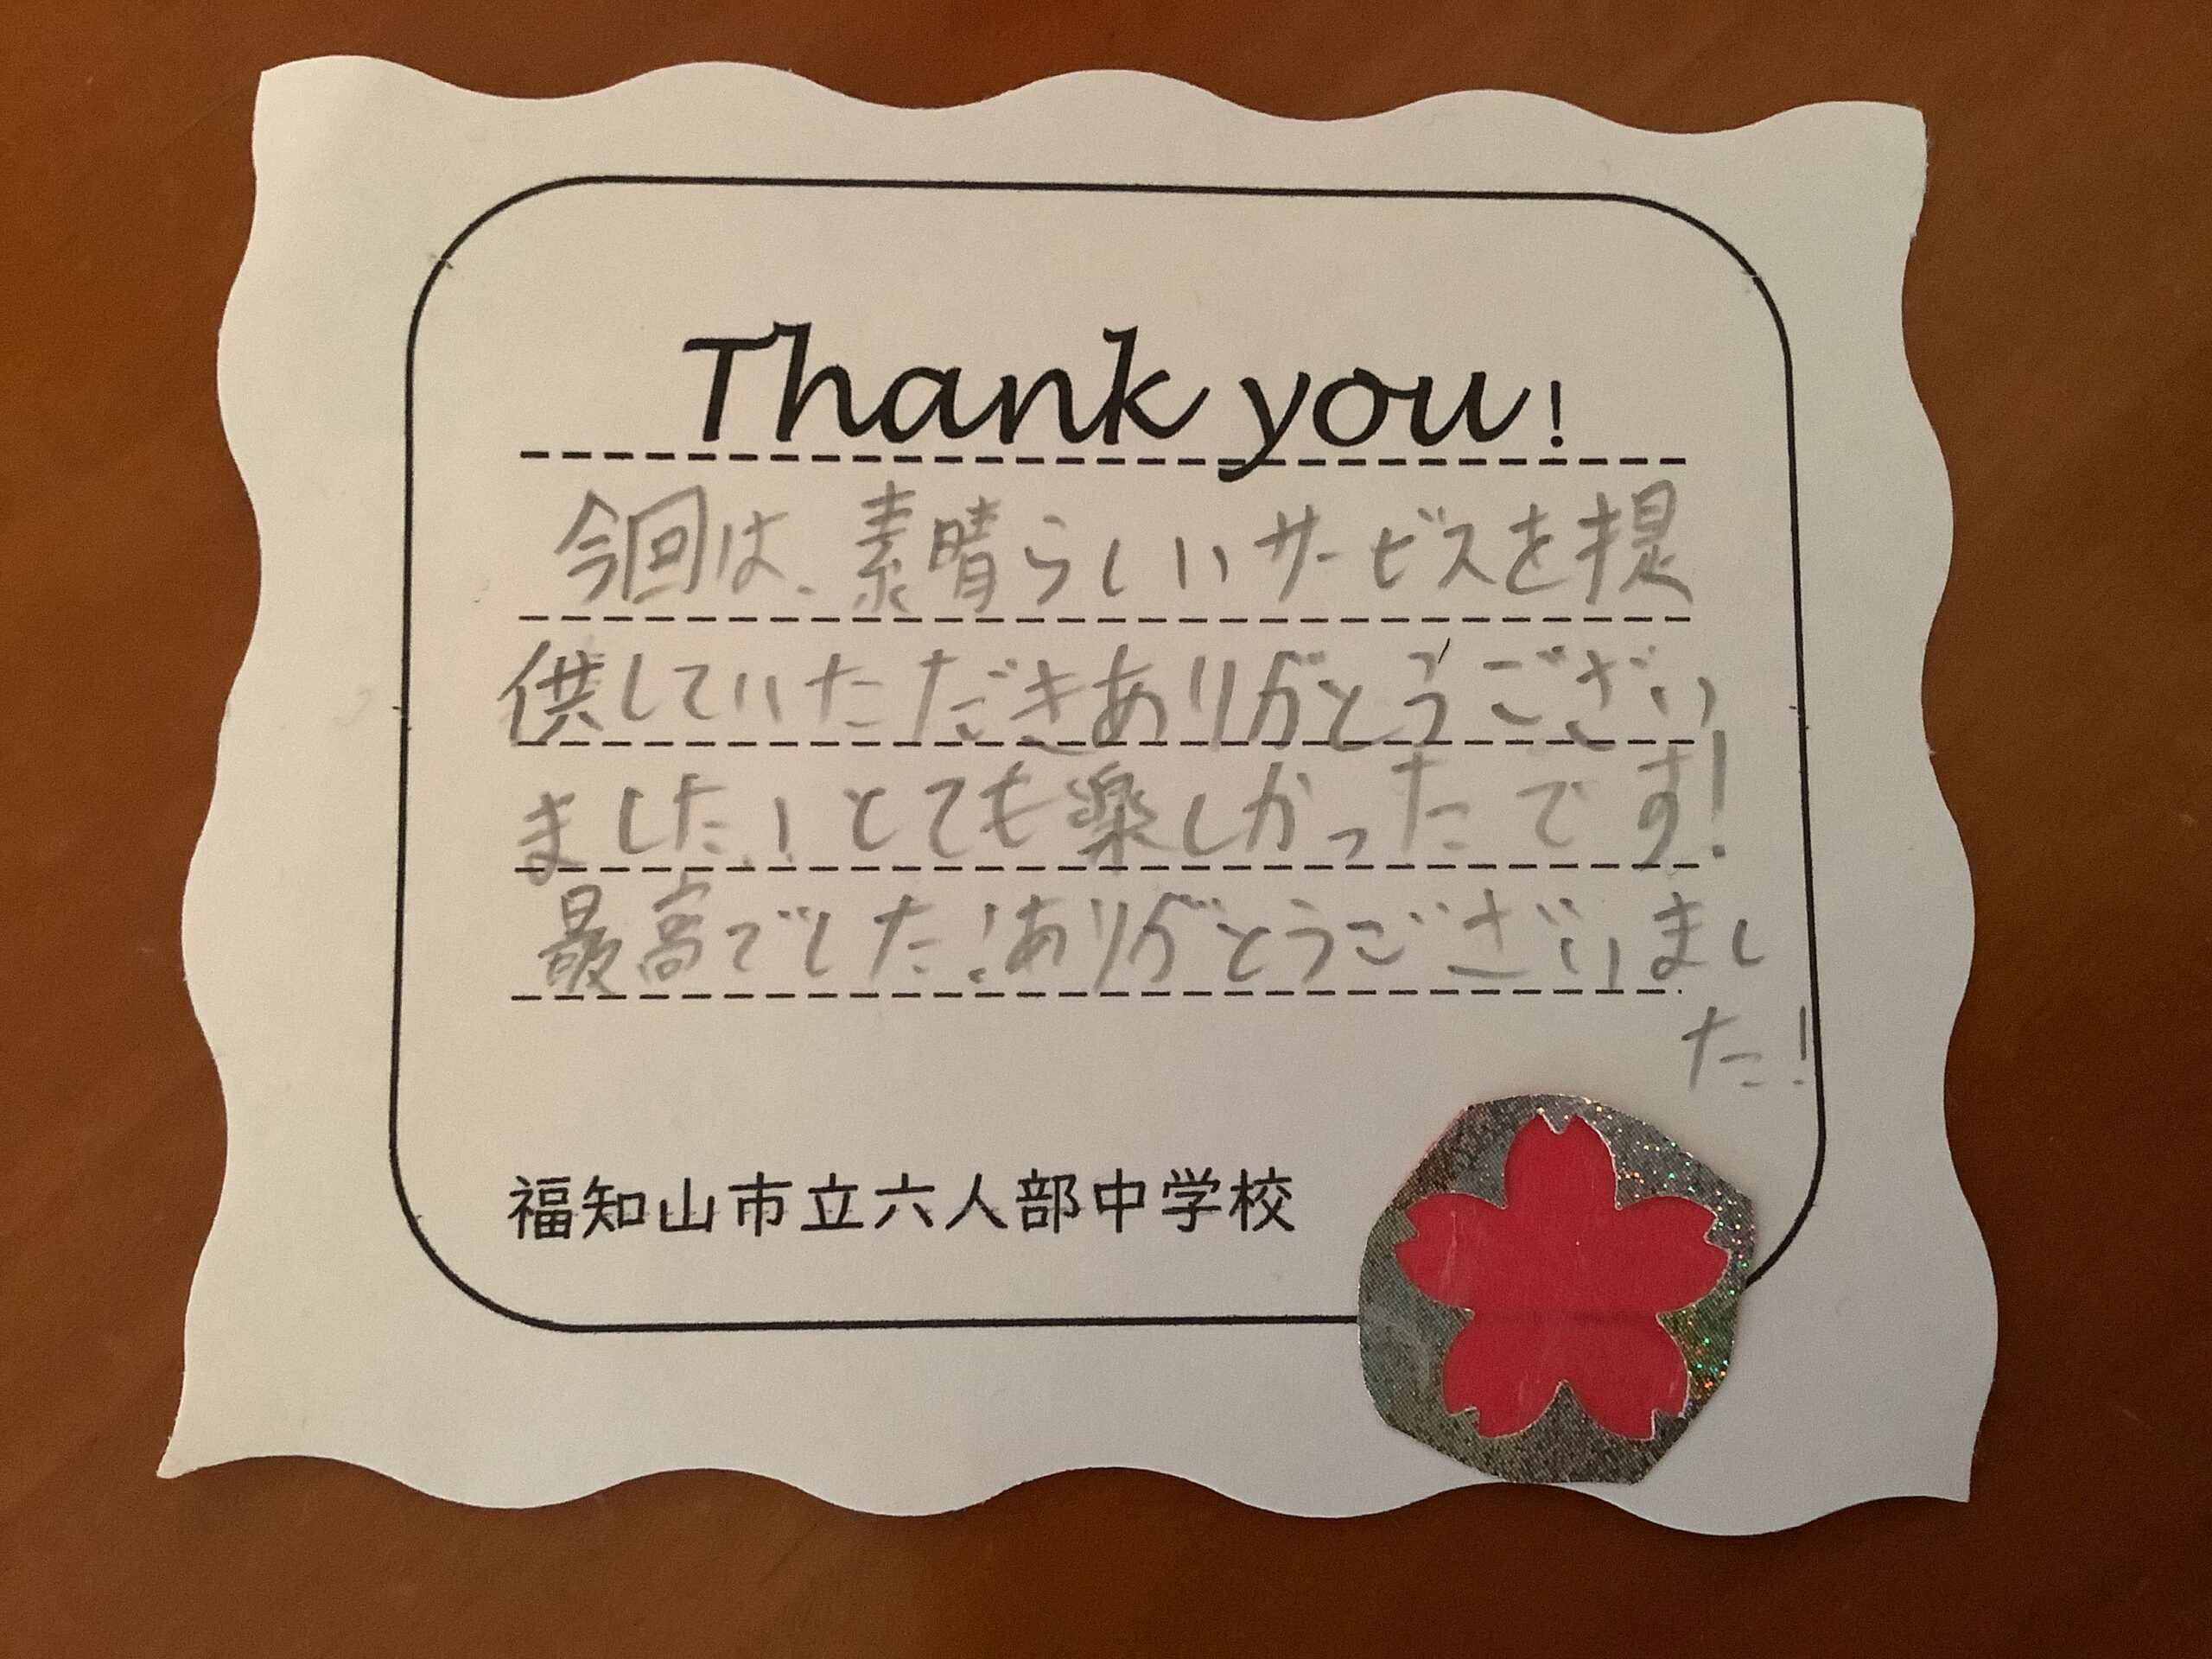 Thank you!
今回は、素晴らしいサービスを提
供していただきありがとうござい
ました!とても楽しかったです!
最高でした!ありがとうございまし
た!
福知山市立六人部中学校